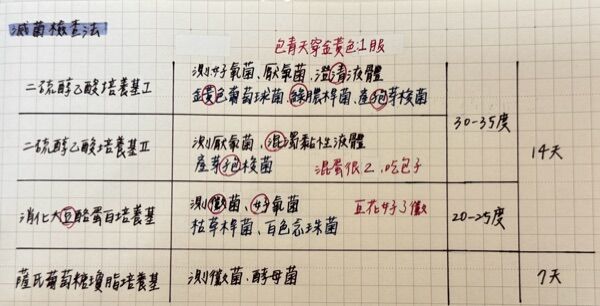 滅菌檢查法
包青天穿金黃色江服
二硫醇乙酸培養基I
測好氧菌、厭氧菌、澄清液體
金黃色葡萄球菌、綠膿桿菌、產孢芽梭菌
30-35度
二硫醇乙酸培養基II
測厭氧菌、混濁黏性液體
產芽孢梭菌
混蛋很2,吃包子
14天
消化大豆酪蛋白培養基
測黴菌、好氧菌
枯草桿菌、白色念珠菌
豆花好3黴
20-25度
薩氏葡萄糖瓊脂培養基
測黴菌、酵母菌
7天